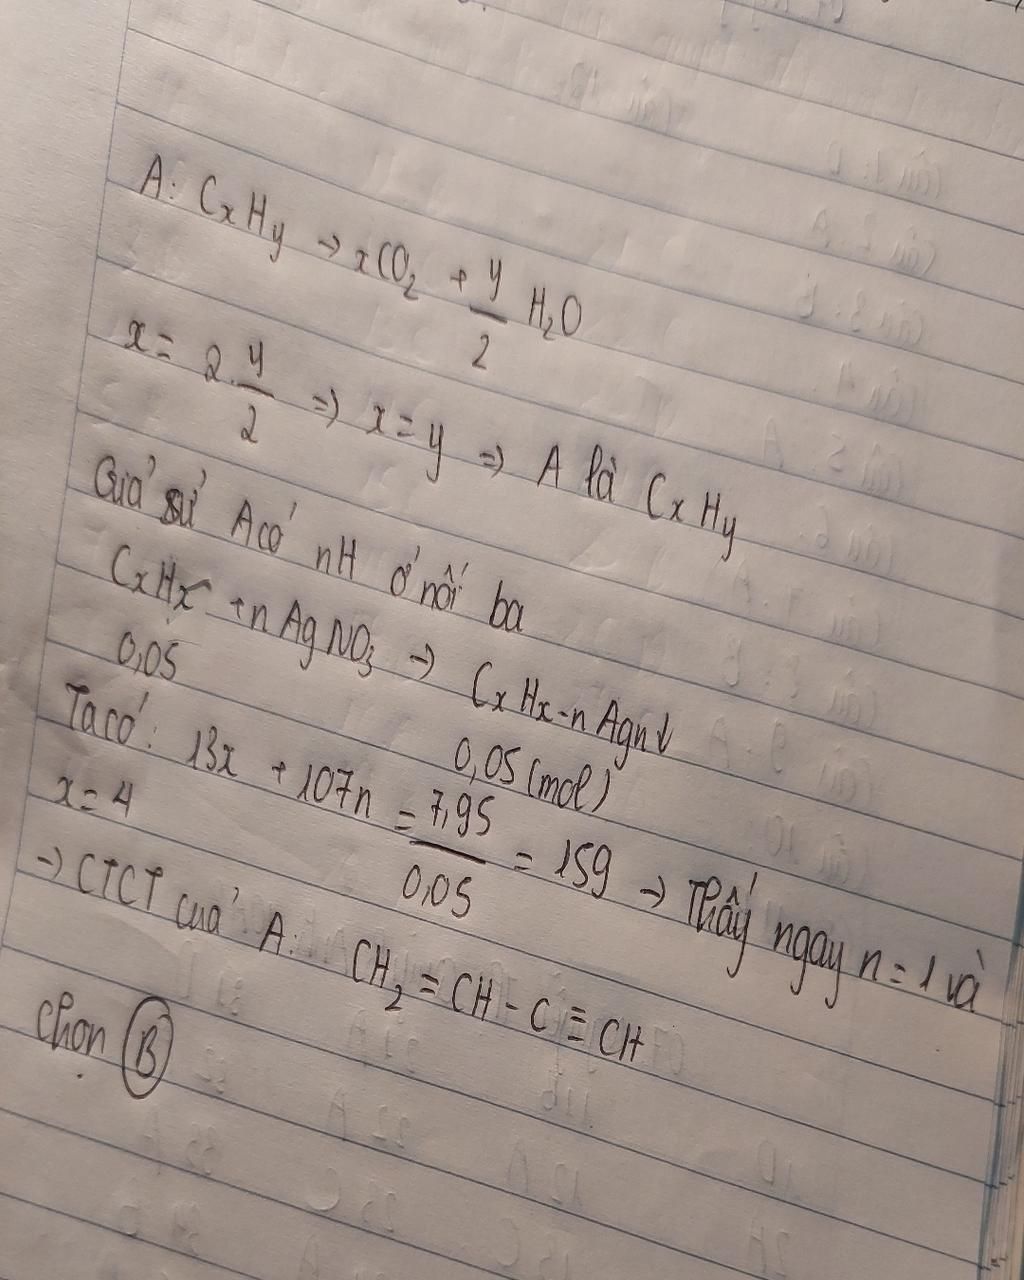 A: CxHy → xCO₂ + y/2 H₂O
x = 2.y/2 ⇒ x = y ⇒ A là CxHy
Giả sử A có nH ở nối ba
CxHx + nAgNO₃ → CxHx-nAgn↓
0,05 0,05 (mol)
Ta có: 13x + 107n = 7,95/0,05 = 159 → Thấy ngay n = 1 và
x = 4
→ CTCT của A: CH₂ = CH - C ≡ CH
chọn B